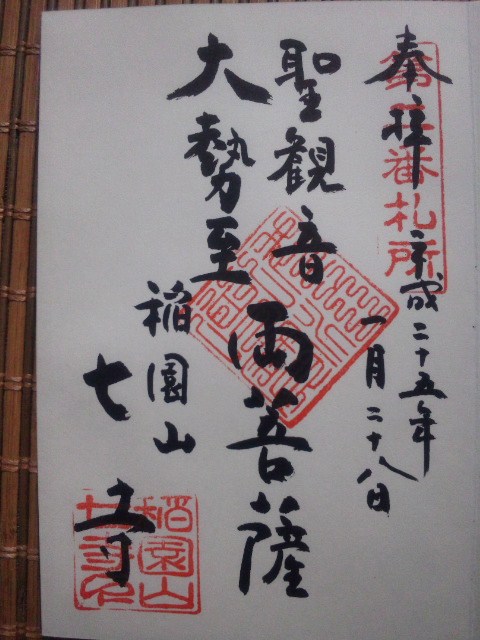 奉拝
第三番札所
平成二十五年
一月二十八日
聖観音
大勢至
両菩薩
稲園山
七寺
稲園山
七寺印